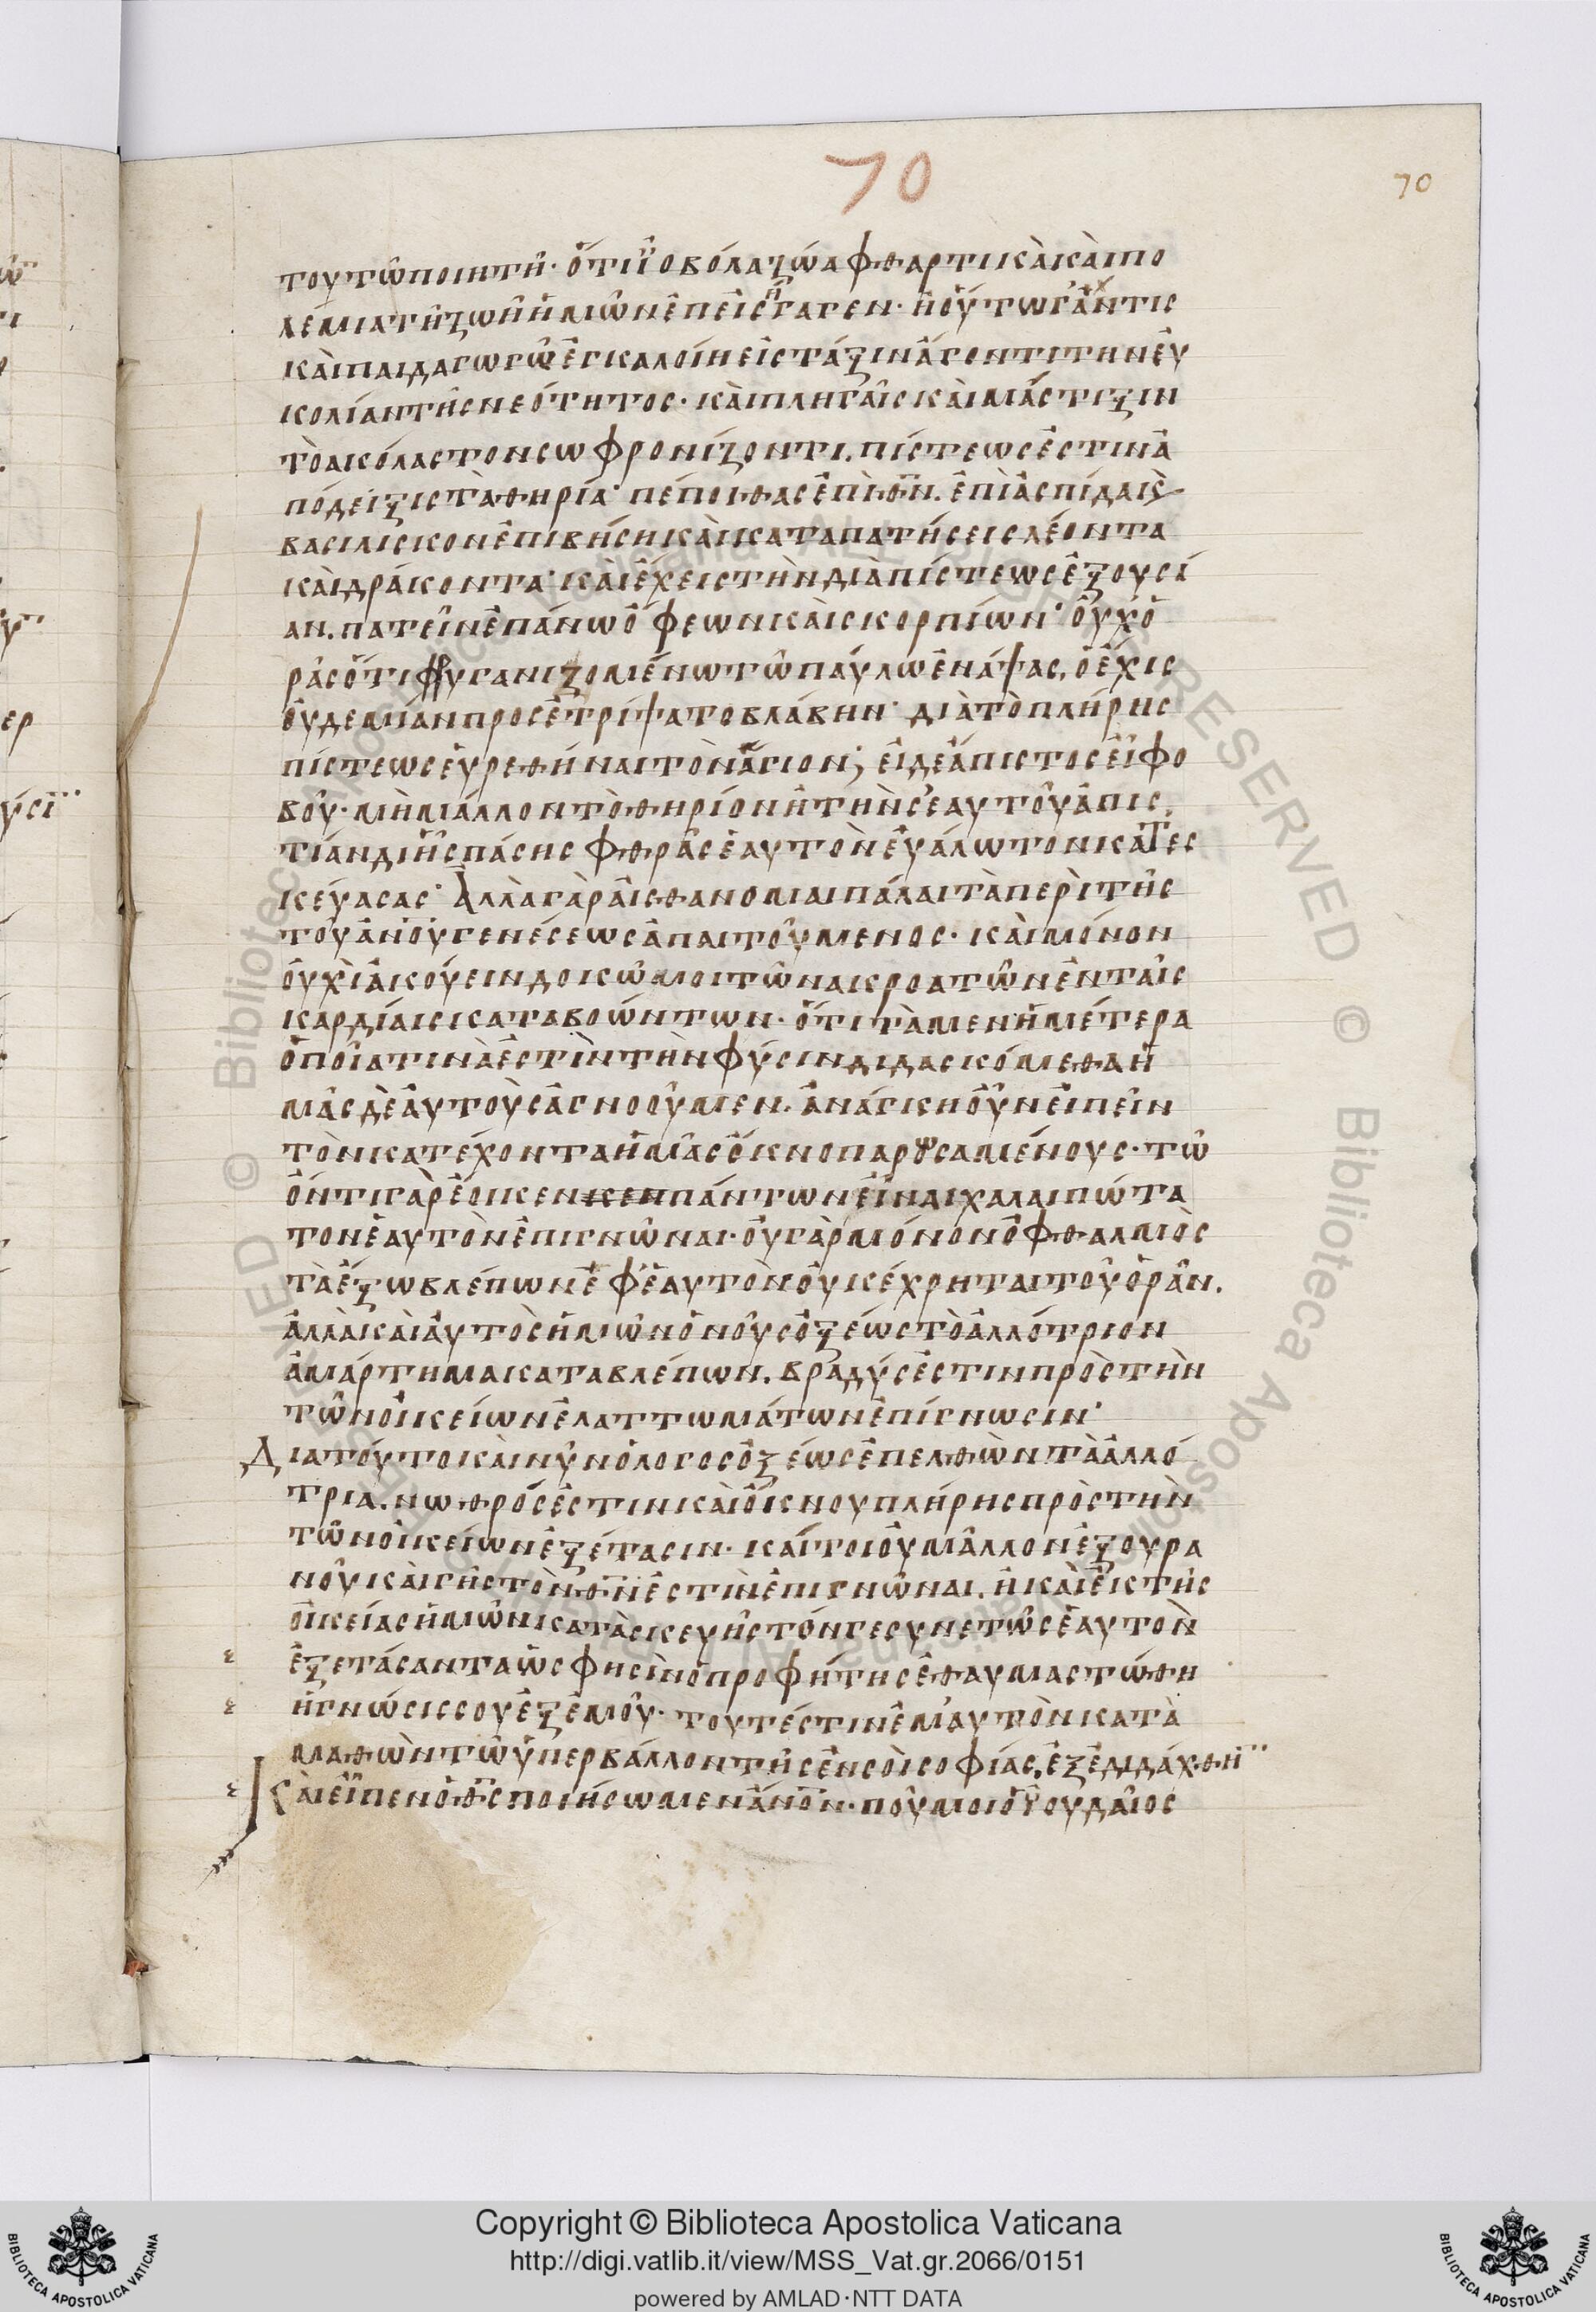 70
70
τουτῶποιητῆ· ὅτιϊοβόλαζῶαφθαρτικὰκαὶπο
λέμιατῆζωῆἡμῶνἐπεισήγαγεν· ἢοὕτωγἄντις
καὶπαιδαγωγῶἐγκαλοίηεἰςτάξινἄγοντιτηνεὐ
κολίαντῆςνεότητος· καὶπληγαῖςκαὶμάστιξιν
τὸακόλαστονσωφρονίζοντι. πίστεωςἐστινἀ
πόδειξιςτὰθηρία· πέποιθαςἐπὶθν̄. ἐπὶἀσπίδακς
βασιλισκονἐπιβήσηκαὶκαταπατήσειςλέοντα
καὶδράκοντα· καὶἔχειςτὴνδιὰπίστεωςἐξουσί
αν. πατεῖνἐπάνωὄφεωνκαὶσκορπίων· οὐχὁ
ρᾶςὅτιφρυγανιζομένωτῶπαύλωἐνάψας, ὁἔχις
οὐδεμίανπροσἐτρίψατοβλάβην· διὰτὸπλήρης
πίστεωςεὑρεθῆναιτὸνἅγιον; εἰδεἄπιστοςεἶφο
βοῦ· μὴμᾶλλοντὸθηρίονἢτὴνσἑαυτοῦἀπισ
τίανδιἧςπάσηςφθρᾶςἑαυτὸνεὐάλωτονκατες
κεύασας· Ἀλλὰγὰραἰσθανομαιπάλαιτὰπερὶτῆς
τοῦἀνο̄υγενέσεωςἀπαιτούμενος· καὶμόνον
οὐχὶἀκούεινδοκῶμοιτῶνακροατῶνἐνταῖς
καρδίαιςκαταβοώντων· ὅτιτὰμενἡμέτερα
ὁποῖατιναἐστὶντὴνφύσινδιδασκόμεθαἡ
μᾶςδὲἀυτοὺςἀγνοοῦμεν. ἀνάγκηοὖνεἰπεῖν
τὸνκατέχονταἡμᾶςὄκνοπαρωσαμένους· τῶ
ὄντιγὰρἔοικενκενπάντωνεἶναιχαλαιπώτα
τονἑαυτὸνἐπιγνῶναι· οὐγὰρμόνονὀφθαλμὸς
τὰἔξωβλέπωνἐφἑαυτὸνοὐκέχρηταιτοῦὁρᾶν.
ἀλλὰκαὶἀυτὸςἡμῶνὁνοῦςὀξέωςτὸἀλλότριον
ἁμάρτημακαταβλέπων. βραδύςἐστινπρὸςτὴν
τῶνοἰκείωνἐλαττωμάτωνἐπίγνωσιν·
Διατοῦτοκαὶνῦνὁλογοςὀξέωςἐπελθὼντὰἀλλό
τρια. νωθρόςἐστινκαὶὄκνουπλήρηςπρὸςτὴν
τῶνοἰκείωνἐξέτασιν· καίτοιοὐμᾶλλονἐξουρα
νοῦκαὶγῆςτὸνθν̄ἐστὶνἐπιγνῶναι. ἢκαὶἐκτῆς
οἰκείαςἡμῶνκατασκευῆςτόνγεσυνετῶςἑαυτὸν
ἐξετάσανταὥςφησὶνὁπροφήτηςἐθαυμαστώθη
ἡγνῶσιςσουἐξἐμοῦ· τουτέστινἐμαυτὸνκατὰ
μαθὼντῶὑπερβάλλοντῆςἐνσοὶσοφίας, ἐξεδιδάχθη
Καὶεἶπενὁθς̄ποιήσωμενἄνο̄ν· ποῦμοιὁϊουδαῖος
Copyright © Biblioteca Apostolica Vaticana
http://digi.vatlib.it/view/MSS_Vat.gr.2066/0151
powered by AMLAD·NTT DATA